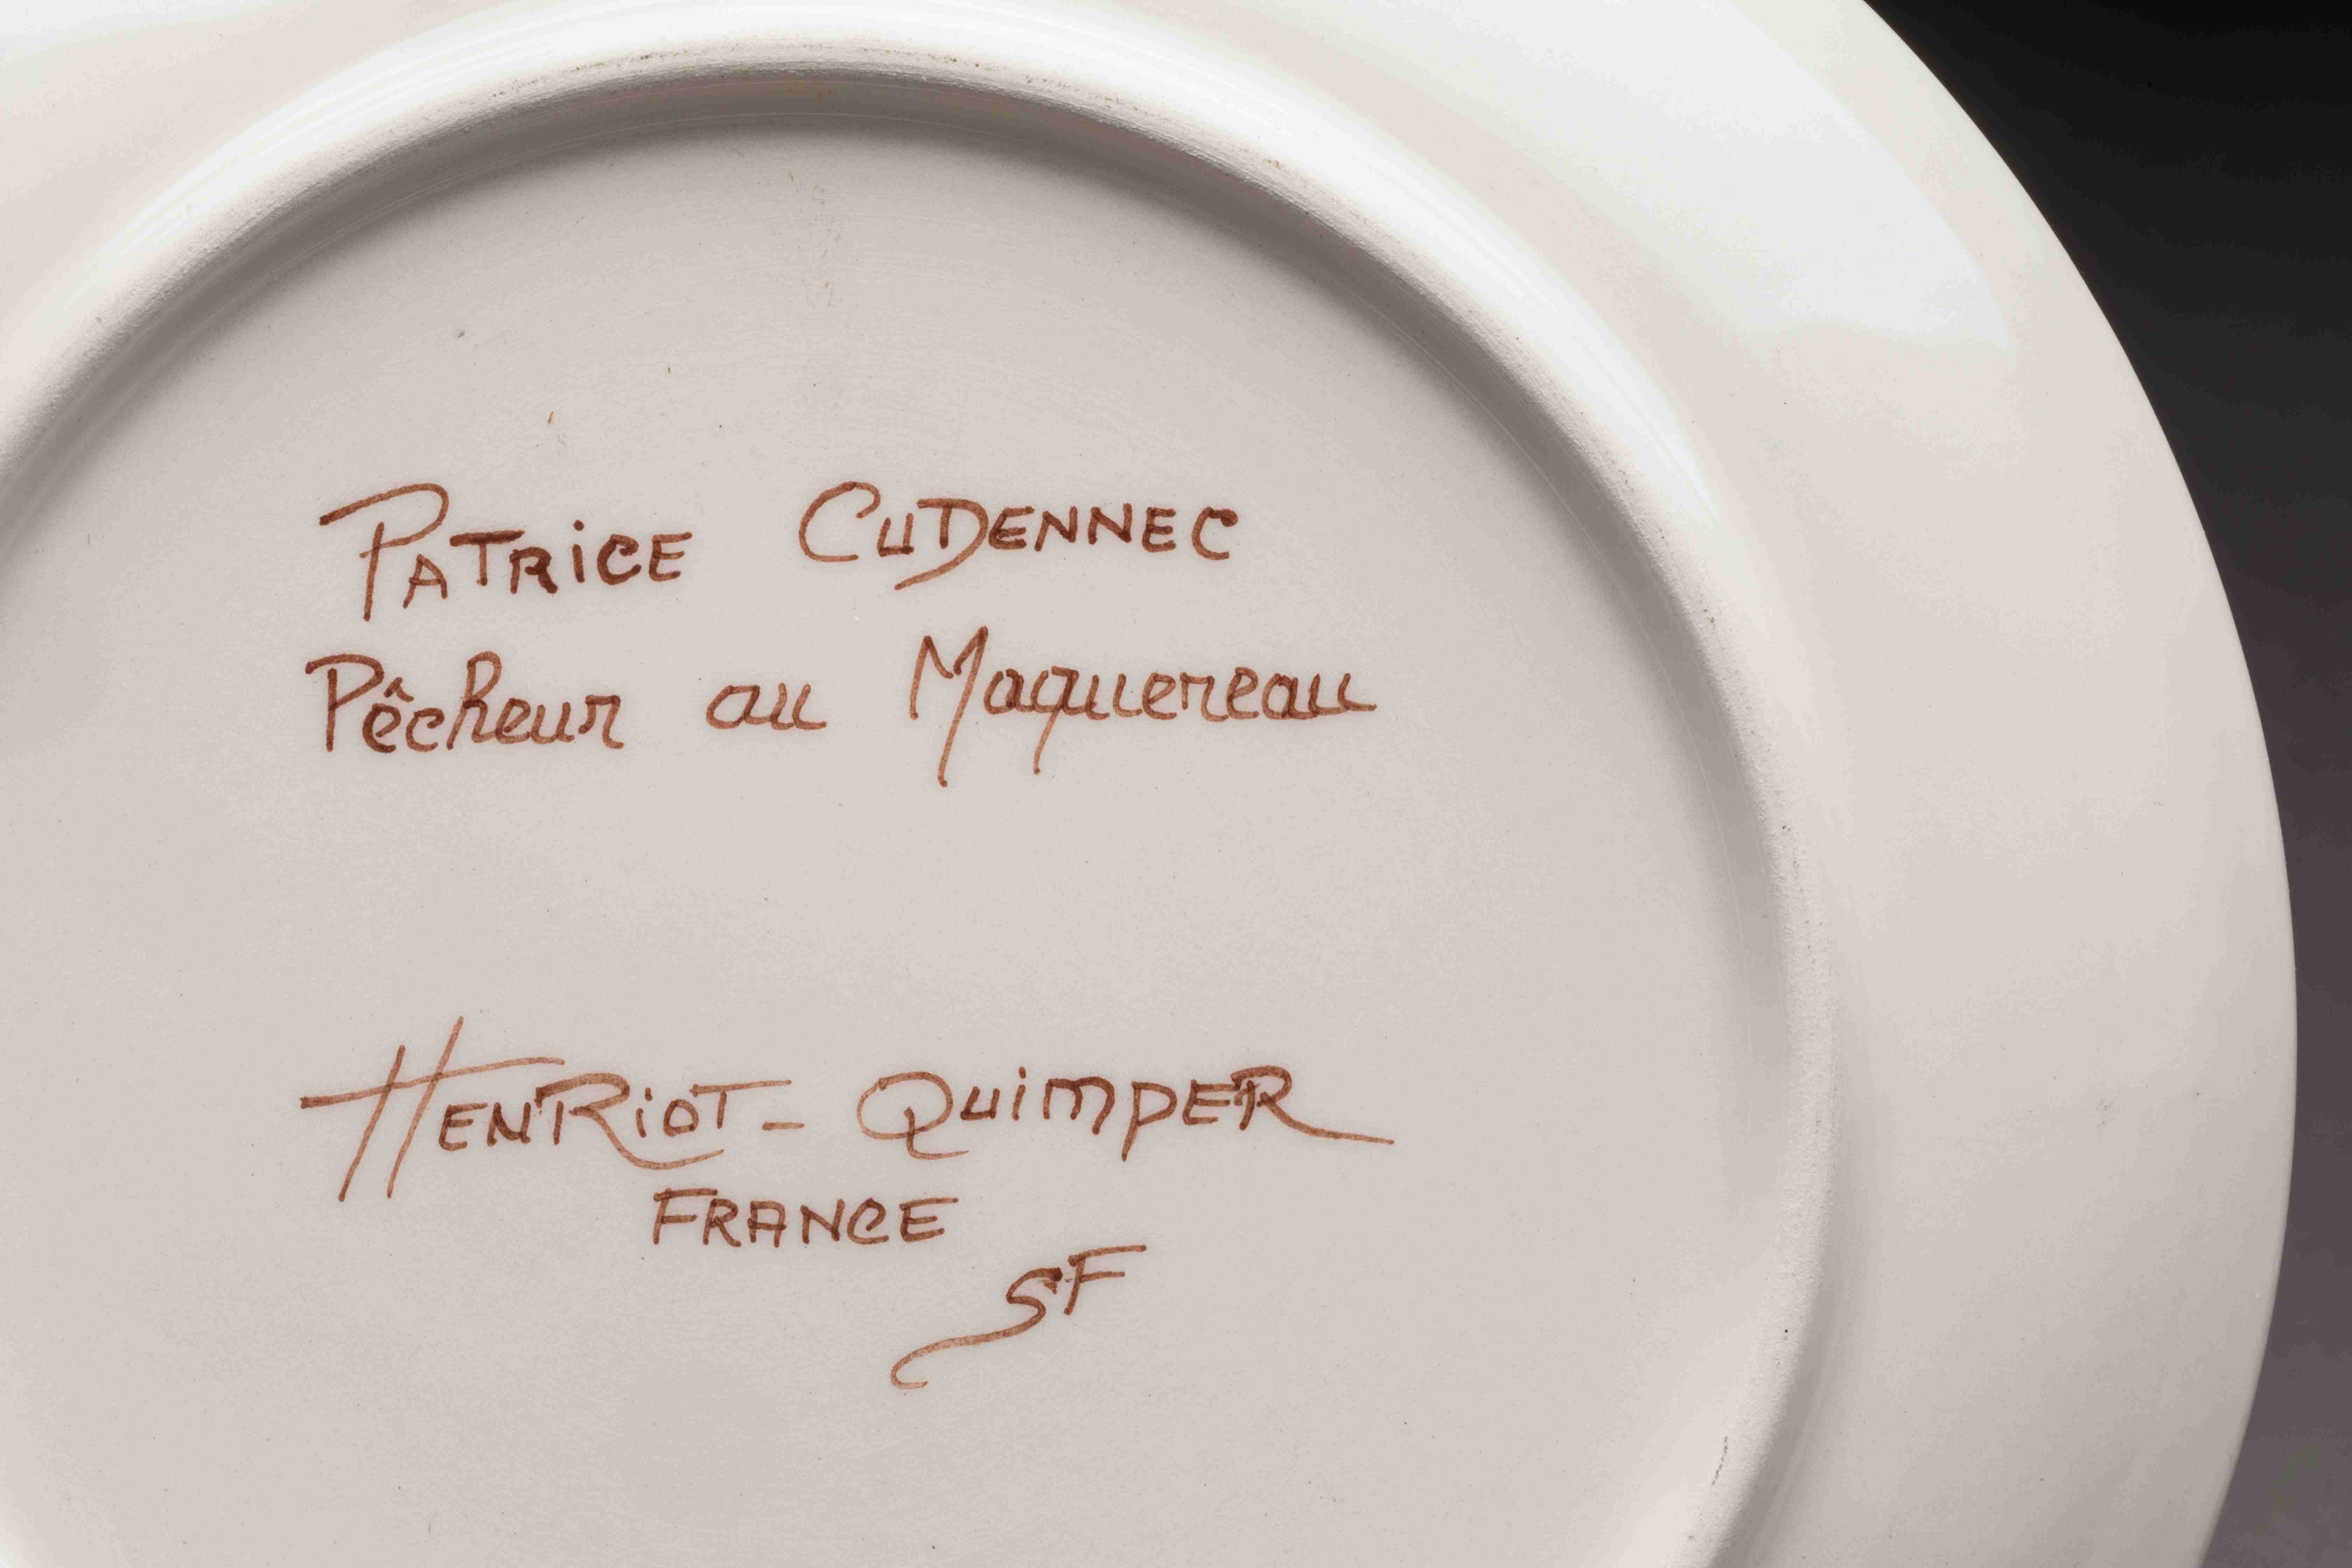 PATRiCE CUDENNEC
Pêcheur au Maquereau
HENRiOT - QuimpER
FRANCE
SF